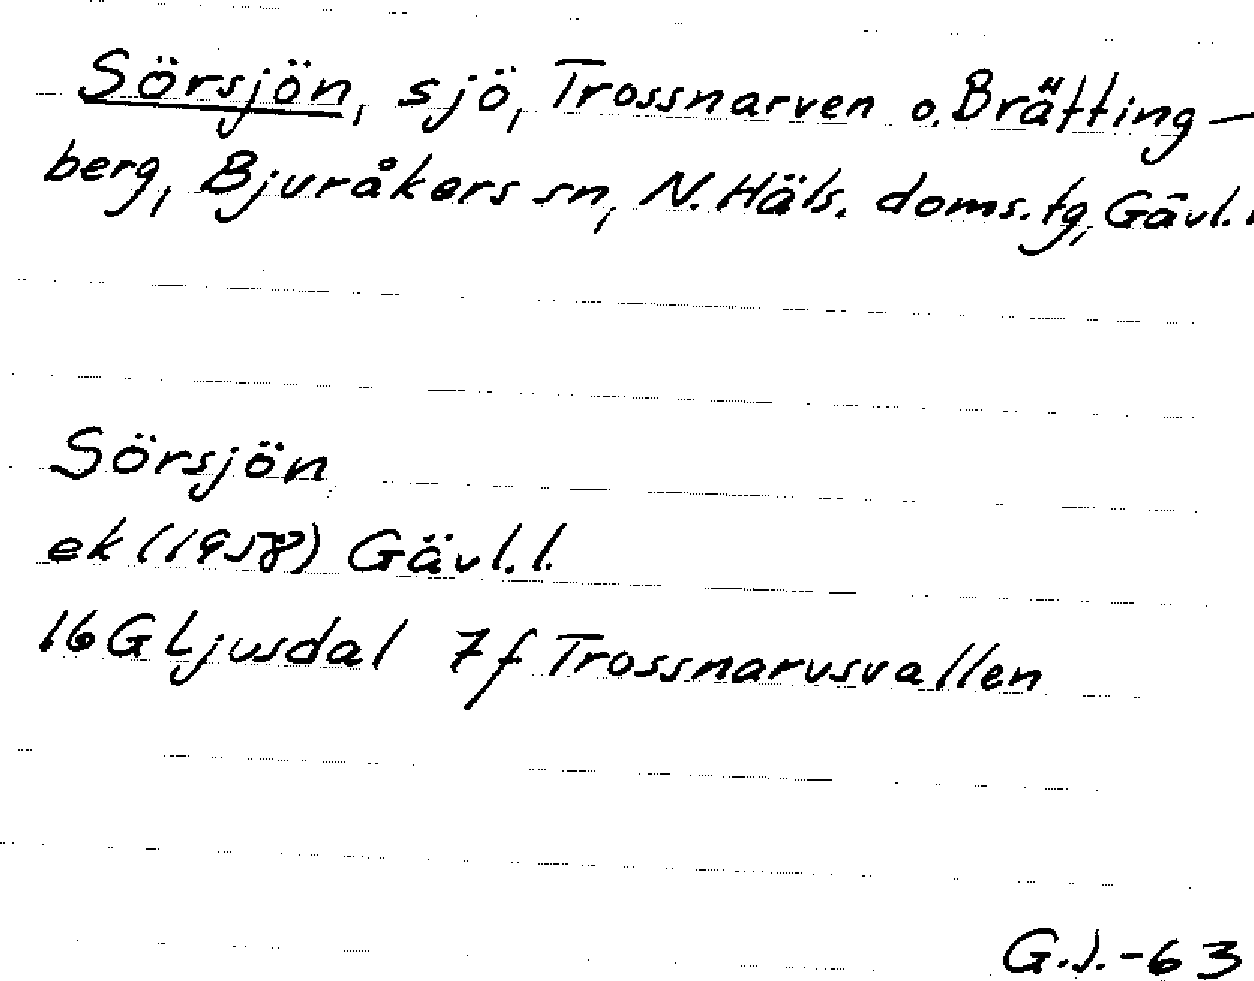 Sörsjön, sjö, Trossnarven o. Brätting-
berg, Bjuråkers sn, N. Häls. doms. tg, Gävl. l
Sörsjön
ek (1958) Gävl. l.
16G Ljusdal 7f Trossnarvsvallen
G.J.-63